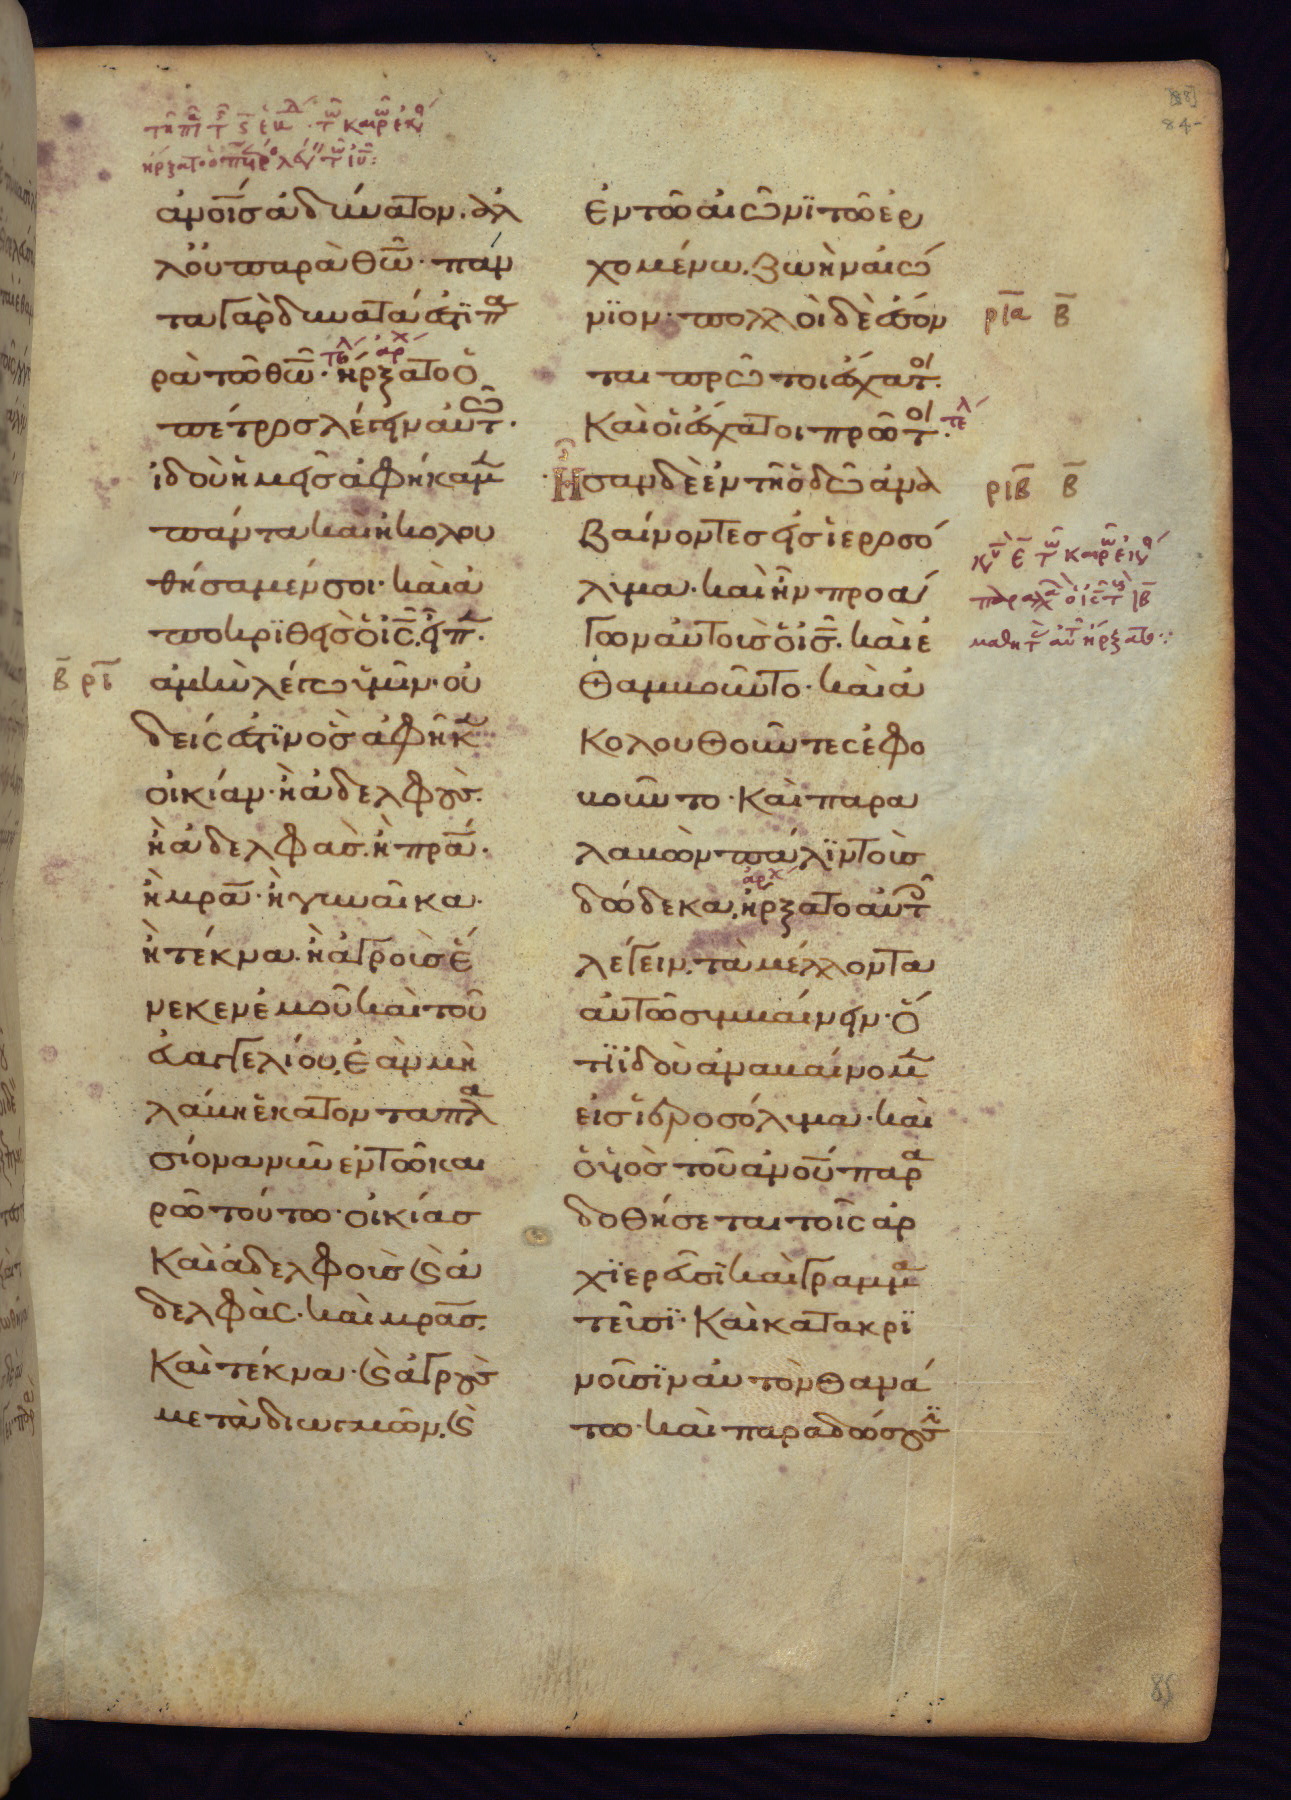 ἀνο͞ισ ἀδύνατον. ἀλ
λ' οὐ παρὰ θ͞ω· πάν
τα γὰρ δυνατά ἐστϊ πα
ρὰ τῶ θ͞ω· ἤρξατο ὁ
πέτρος λέγειν αὐτῶ·
ἰδοὺ ἡμεῖς ἀφήκαμ
πάντα καὶ ἠκολου
θήσαμέν σοι· καὶ ἀ
ποκρϊθεὶς ὁ ι͞ς εἶπ·
β͞ ρ͞ι ἀμὴν λέγω ὑμῖν· οὐ
δείς ἐστϊν ὃς ἀφῆκ
οἰκίαν· ἢ ἀδελφούς.
ἢ ἀδελφάς. ἢ πρ͞α·
ἢ μρ͞α· ἢ γυναῖκα·
ἢ τέκνα. ἢ ἀγροὺς ἕ
νεκεν ἐμοῦ καὶ τοῦ
εὐαγγελίου, ἐὰν μὴ
λάβη ἑκατονταπλα
σίονα νῦν ἐν τῶ και
ρῶ τούτω· οἰκίας
Καὶ ἀδελφοὺς ϗ ἀ
δελφὰς· καὶ μρ͞ας.
Καὶ τέκνα· ϗ ἀγροὺς
μετὰ διωγμῶν, ϗ
ἐν τῶ αἰῶνϊ τῶ ἐρ
χομένω. ζωὴν αἰώ
νϊον· πολλοὶ δὲ ἔσον ρ͞ι͞α β͞
ται πρῶτοι ἔσχατοι.
Καὶ οἱ ἔσχατοι πρῶτοι· τελ
Ἦσαν δὲ ἐν τῆ ὁδῶ ἀνα ρ͞ι͞β β͞
βαίνοντες εἰς ἱεροσό
λυμα· καὶ ἦν προά
γων αὐτοὺς ὁ ι͞ς. καὶ ἐ
θαμβοῦντο· καὶ ἀ
κολουθοῦντες ἐφο
βοῦντο· Καὶ παρα
λαβὼν πάλϊν τοὺς
δώδεκα, ἤρξατο αὐτοῖς
λέγειν, τὰ μέλλοντα
αὐτῶ συμβαίνειν· ὅ
τϊ ἰδοὺ ἀναβαίνομ
εἰς ἱεροσόλυμα· καὶ
ὁ υἱὸς τοῦ ἀνο͞υ παρα
δοθήσεται τοῖς ἀρ
χϊερεῦσϊ καὶ γραμμα
τεῦσϊ· Καὶ κατακρϊ
νοῦσϊν αὐτὸν θανά
τω· καὶ παραδώσουσϊ
84
85